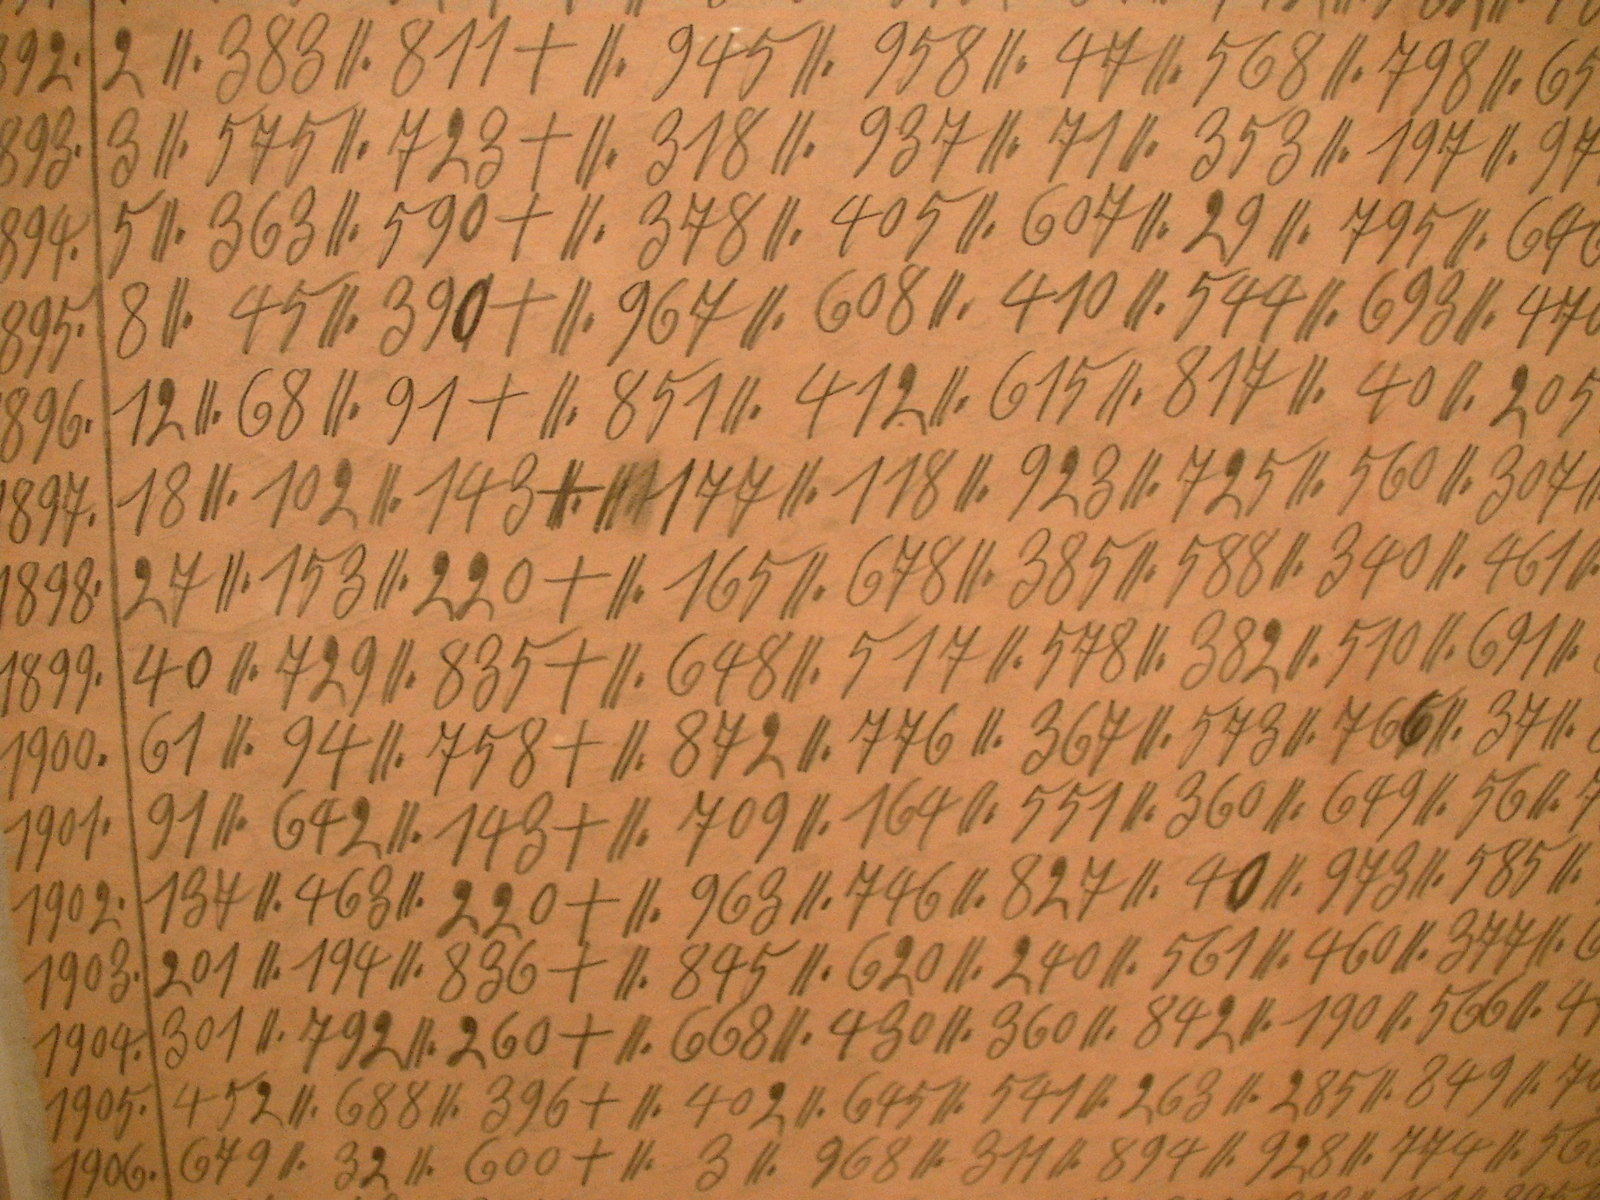 892. 2 //. 383 //. 811 + //. 945 //. 958 //. 47 //. 568 //. 798 //. 65
893. 3 //. 575 //. 723 + //. 318 //. 937 //. 71 //. 353 //. 197 //. 97
894. 5 //. 363 //. 590 + //. 378 //. 405 //. 607 //. 29 //. 795 //. 646
895. 8 //. 45 //. 390 + //. 967 //. 608 //. 410 //. 544 //. 693 //. 470
896. 12 //. 68 //. 91 + //. 851 //. 412 //. 615 //. 817 //. 40 //. 205
1897. 18 //. 102 //. 143 + //. 177 //. 118 //. 923 //. 725 //. 560 //. 307 //.
1898. 27 //. 153 //. 220 + //. 165 //. 678 //. 385 //. 588 //. 340 //. 461 //.
1899. 40 //. 729 //. 835 + //. 648 //. 517 //. 578 //. 382 //. 510 //. 691 //.
1900. 61 //. 94 //. 758 + //. 872 //. 776 //. 367 //. 573 //. 766 //. 37 //.
1901. 91 //. 642 //. 143 + //. 709 //. 164 //. 551 //. 360 //. 649 //. 56 //. 7
1902. 137 //. 463 //. 220 + //. 963 //. 746 //. 827 //. 40 //. 973 //. 585 //.
1903. 201 //. 194 //. 836 + //. 845 //. 620 //. 240 //. 561 //. 460 //. 377 //. 6
1904. 301 //. 792 //. 260 + //. 668 //. 430 //. 360 //. 842 //. 190 //. 566 //. 4
1905. 452 //. 688 //. 396 + //. 402 //. 645 //. 541 //. 263 //. 285 //. 849 //. 70
1906. 679 //. 32 //. 600 + //. 3 //. 968 //. 311 //. 894 //. 928 //. 774 //. 56